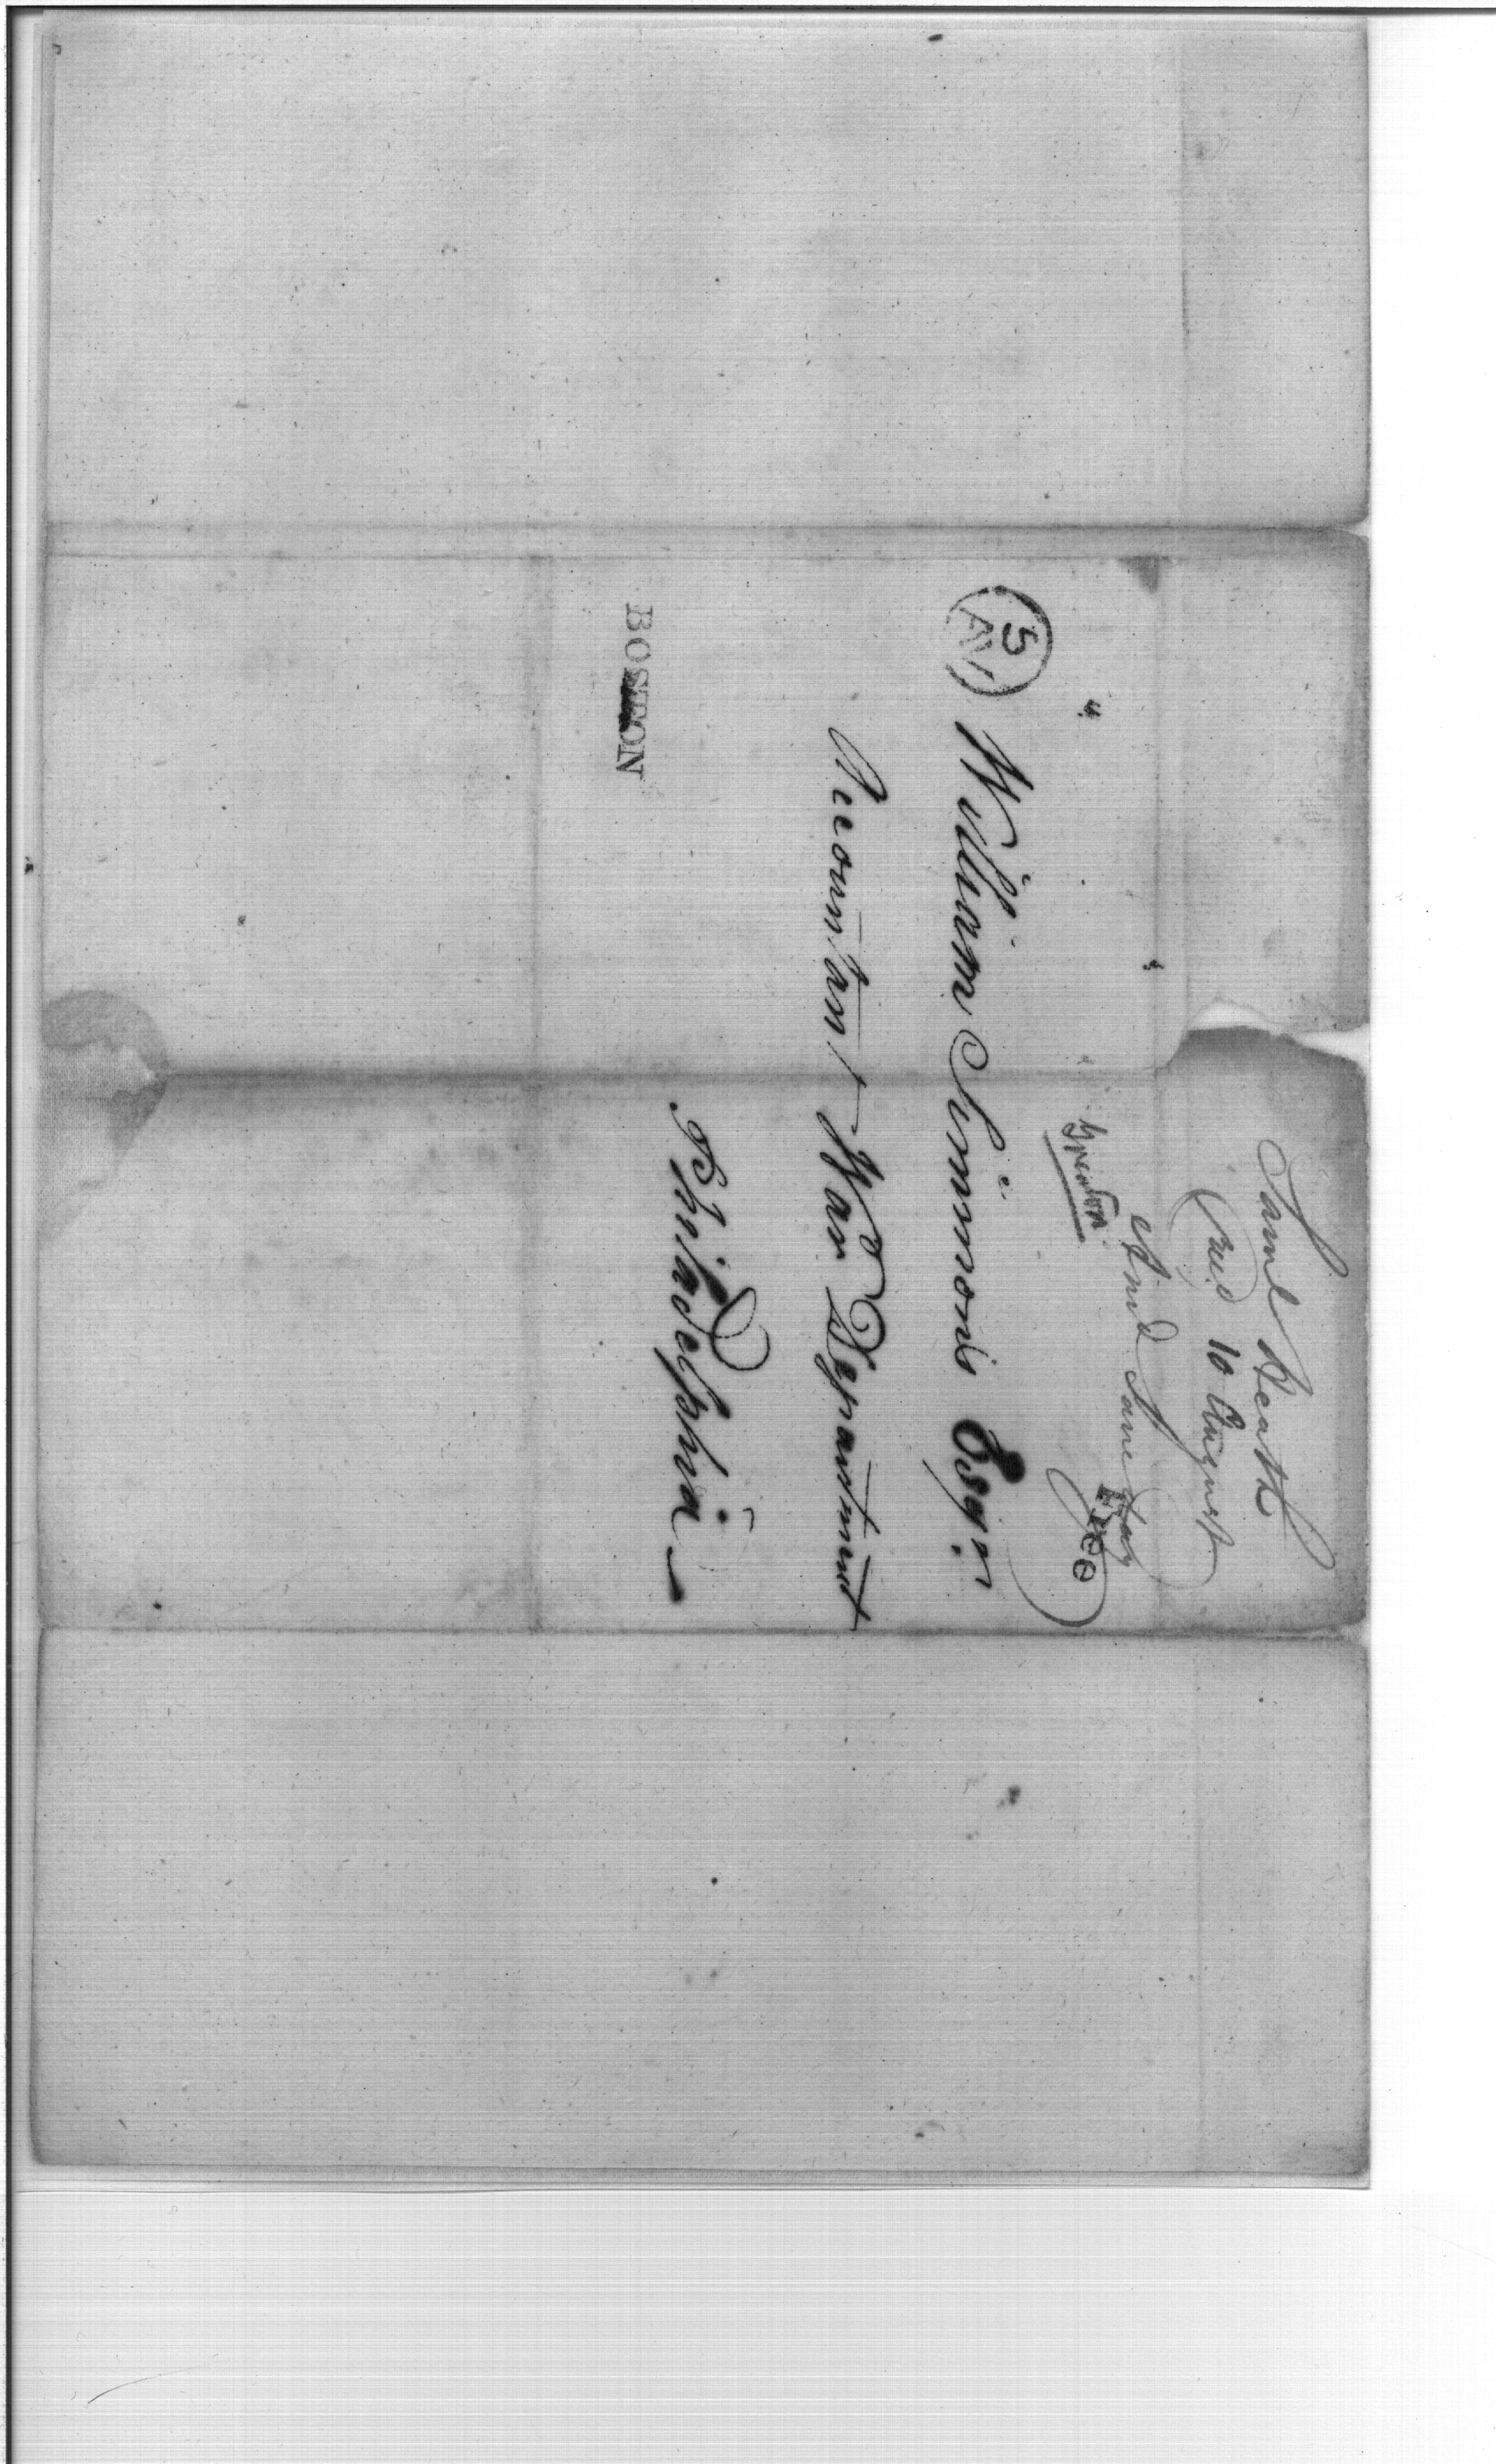 Saml Heath
recd 10 August
Ansd Same day
Free
5
AV
William Simmons Esqr.
Accountant War Department
Philadelphia
BOSTON